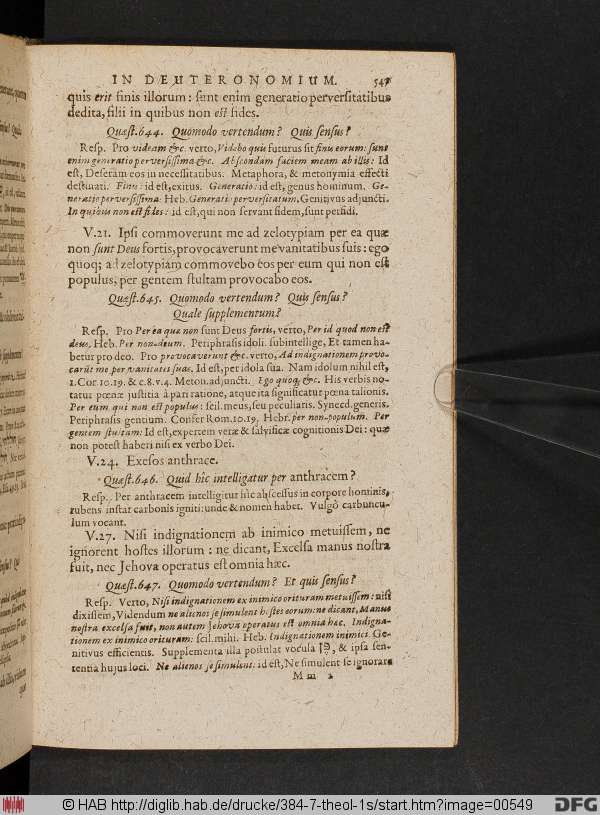 IN DEUTERONOMIUM. 547
quis erit finis illorum: sunt enim generatio perversitatibus
dedita, filii in quibus non est fides.
Quæst.644. Quomodo vertendum? Quis sensus?
Resp. Pro videam &c. verto, Videbo quis futurus sit finis eorum: sunt
enim generatio perversissima &c. Abscondam faciem meam ab illis: Id
est, Deseram eos in necessitatibus. Metaphora, & metonymia effecti
destinati. Finis: id est, exitus. Generatio: id est, genus hominum. Ge-
neratio perversissima: Heb. Generatio perversitatum. Genitivus adjuncti.
In quibus non est fides: id est, qui non servant fidem, sunt perfidi.
V.21. Ipsi commoverunt me ad zelotypiam per ea quæ
non sunt Deus fortis, provocaverunt me vanitatibus suis: ego
quoq; ad zelotypiam commovebo eos per eum qui non est
populus, per gentem stultam provocabo eos.
Quæst.645. Quomodo vertendum? Quis sensus?
Quale supplementum?
Resp. Pro Per ea quæ non sunt Deus fortis, verto, Per id quod non est
deus, Heb. Per non-deum. Periphrasis idoli. subintellige, Et tamen ha-
betur pro deo. Pro provocaverunt &c. verto, Ad indignationem provo-
carūt me per vanitates suas. Id est, per idola sua. Nam idolum nihil est,
1. Cor. 10.19. & c.8. v.4. Meton. adjuncti. Ego quoq; &c. His verbis no-
tatur pœnæ justitia à pari ratione, atque ita significatur pœna talionis.
Per eum qui non est populus: scil. meus, seu peculiaris. Synecd. generis.
Periphrasis gentium. Confer Rom.10.19. Hebr. per non-populum. Per
gentem stultam: Id est, expertem veræ & salvificæ cognitionis Dei: quæ
non potest haberi nisi ex verbo Dei.
V.24. Exesos anthrace.
Quæst.646. Quid hîc intelligatur per anthracem?
Resp. Per anthracem intelligitur hîc abscessus in corpore hominis,
rubens instar carbonis igniti: unde & nomen habet. Vulgò carbuncu-
lum vocant.
V.27. Nisi indignationem ab inimico metuissem, ne
ignorent hostes illorum: ne dicant, Excelsa manus nostra
fuit, nec Jehova operatus est omnia hæc.
Quæst.647. Quomodo vertendum? Et quis sensus?
Resp. Verto, Nisi indignationem ex inimico orituram metuissem: nisi
dixissem, Videndum ne alienos se simulent hostes eorum: ne dicant, Manus
nostra excelsa fuit, non autem Jehova operatus est omnia hæc. Indigna-
tionem ex inimico orituram: scil. mihi. Heb. Indignationem inimici. Ge-
nitivus efficientis. Supplementa illa postulat vocula פן, & ipsa sen-
tentia hujus loci. Ne alienos se simulent: id est, Ne simulent se ignorare
M m 2
© HAB http://diglib.hab.de/drucke/384-7-theol-1s/start.htm?image=00549
DFG